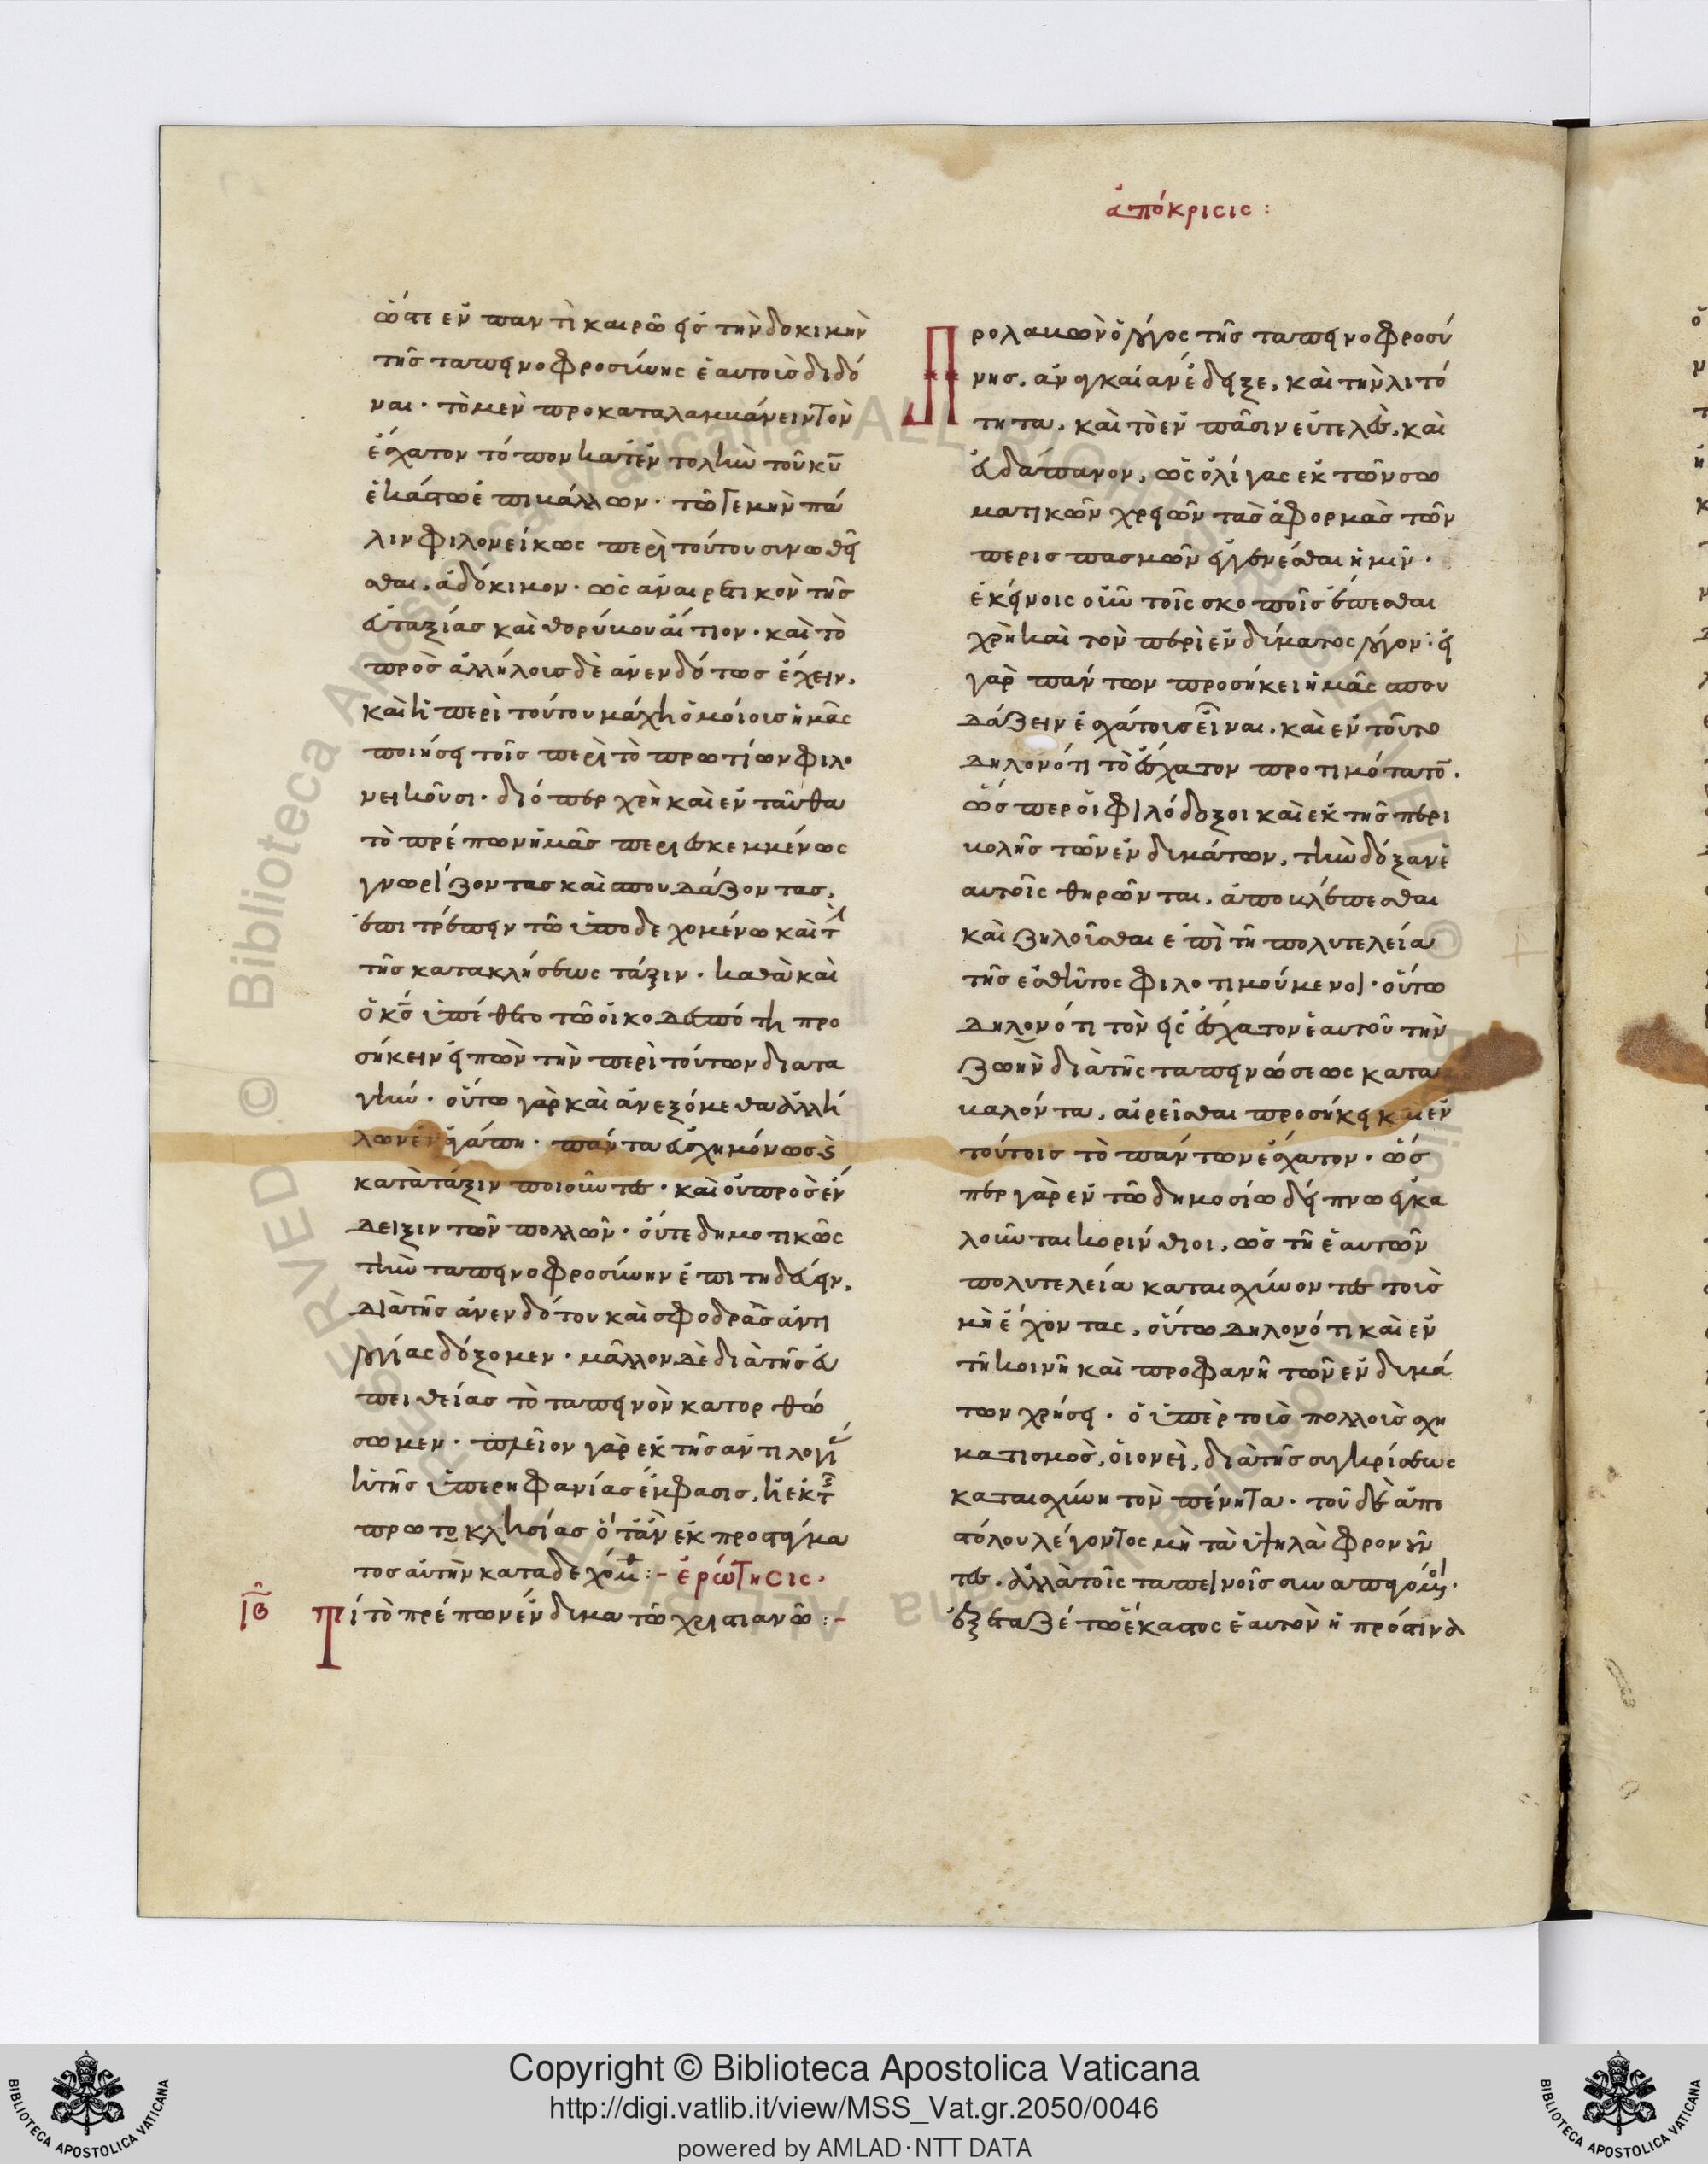 ὥστε ἐν παντὶ καιρῶ εἰς τὴν δοκιμὴν
τῆς ταπεινοφροσύνης ἑαυτοὺς διδό
ναι· τὸ μὲν προκαταλαμβάνειν τὸν
ἔσχατον τόπον κατ' ἐντολὴν τοῦ κῡ
ἑκάστω ἐπιβάλλων· τῶ γε μὴν πά
λιν φιλονείκως περὶ τούτου συνωθεῖ
σθαι, ἀδόκιμον· ὡς ἀναιρετικὸν τῆς
εὐταξίας καὶ θορύβου αἴτιον· καὶ τὸ
πρὸς ἀλλήλους δὲ ἀνενδότως ἔχειν,
καὶ ἡ περὶ τούτου μάχη ὁμοίους ἡμᾶς
ποιήσει τοῖς περὶ τὸ πρωτίων φιλο
νεικοῦσι· διόπερ χρὴ καὶ ἐνταῦθα
τὸ πρέπων ἡμᾶς περιεσκεμμένως
γνωρίζοντας καὶ σπουδάζοντας,
ἐπιτρέπειν τῶ ὑποδεχομένω καὶ τ
τῆς κατακλήσεως τάξιν· καθὰ καὶ
ὁ κς ὑπέθετο τῶ οἰκοδεσπότη προ
σήκειν εἰπὼν τὴν περὶ τούτων διατα
γήν· οὕτω γὰρ καὶ ἀνεξόμεθα ἀλλή
λων ἐν ἀγάπη· πάντα εὐσχημόνως ϗ
κατὰ τάξιν ποιοῦντες· καὶ οὐ πρὸς ἔν
δειξιν τῶν πολλῶν· οὔτε δημοτικῶς
τὴν ταπεινοφροσύνην ἐπιτηδεύειν,
διὰ τῆς ἀνενδότου καὶ σφοδρᾶς ἀντι
λογίας δόξομεν· μᾶλλον δὲ διὰ τῆς εὐ
πειθείας τὸ ταπεινὸν κατορθώ
σωμεν· πλεῖον γὰρ ἐκ τῆς ἀντιλογί
ἡ τῆς ὑπερηφανίας ἔμφασις, ἢ ἐκ τ
πρωτοκλησίας ὅταν ἐκ προστάγμα
τος αὐτὴν καταδεχόμ :- ἐρώτησις·
ιβ Τί τὸ πρέπων ἔνδυμα τῶ χριστιανῶ :-
ἀπόκρισις :
Προλαβὼν ὁ λόγος τῆς ταπεινοφροσύ
νης, ἀναγκαίαν ἔδειξε, καὶ τὴν λιτό
τητα, καὶ τὸ ἐν πᾶσιν εὐτελὲς, καὶ
ἀδάπανον, ὡς ὀλίγας ἐκ τῶν σω
ματικῶν χρειῶν τὰς ἀφορμὰς τῶν
περισπασμῶν ἐγγενέσθαι ἡμῖν·
ἐκείνοις οὖν τοῖς σκοποῖς ἕπεσθαι
χρὴ καὶ τὸν περὶ ἐνδύματος λόγον· εἰ
γὰρ πάντων προσήκει ἡμᾶς σπου
δάζειν ἐσχάτους εἶναι, καὶ ἐν τούτω
δηλονότι τὸ ἔσχατον προτιμότατο·
ὥσπερ οἱ φιλόδοξοι καὶ ἐκ τῆς περι
βολῆς τῶν ἐνδυμάτων, τὴν δόξαν ἑ
αυτοῖς θηρῶνται, ἀποβλέπεσθαι
καὶ ζηλοῦσθαι ἐπὶ τῆ πολυτελεία
τῆς ἐσθῆτος φιλοτιμούμενοι· οὕτω
δηλονότι τὸν εἰς ἔσχατον ἑαυτοῦ τὴν
ζωὴν διὰ τῆς ταπεινώσεως κατα
βαλόντα, αἱρεῖσθαι προσήκει καὶ ἐν
τούτοις τὸ πάντων ἔσχατον· ὥσ
περ γὰρ ἐν τῶ δημοσίω δείπνω ἐγκα
λοῦνται κορίνθιοι, ὡς τῆ ἑαυτῶν
πολυτελεία καταισχύνοντες τοὺς
μὴ ἔχοντας, οὕτω δηλονότι καὶ ἐν
τῆ κοινῆ καὶ προφανῆ τῶν ἐνδυμά
των χρήσει· ὁ ὑπὲρ τοὺς πολλοὺς σχη
ματισμὸς, οἱονεὶ, διὰ τῆς συγκρίσεως
καταισχύνη τὸν πένητα· τοῦ δὲ ἀπο
στόλου λέγοντος μὴ τὰ ὑψηλὰ φρονοῦν
τες· ἀλλὰ τοῖς ταπεινοῖς συναπαγόμ·
ἐξεταζέτω ἕκαστος ἑαυτὸν ἢ πρό τινα
Copyright © Biblioteca Apostolica Vaticana
http://digi.vatlib.it/view/MSS_Vat.gr.2050/0046
powered by AMLAD·NTT DATA
BIBLIOTECA APOSTOLICA VATICANA
BIBLIOTECA APOSTOLICA VATICANA